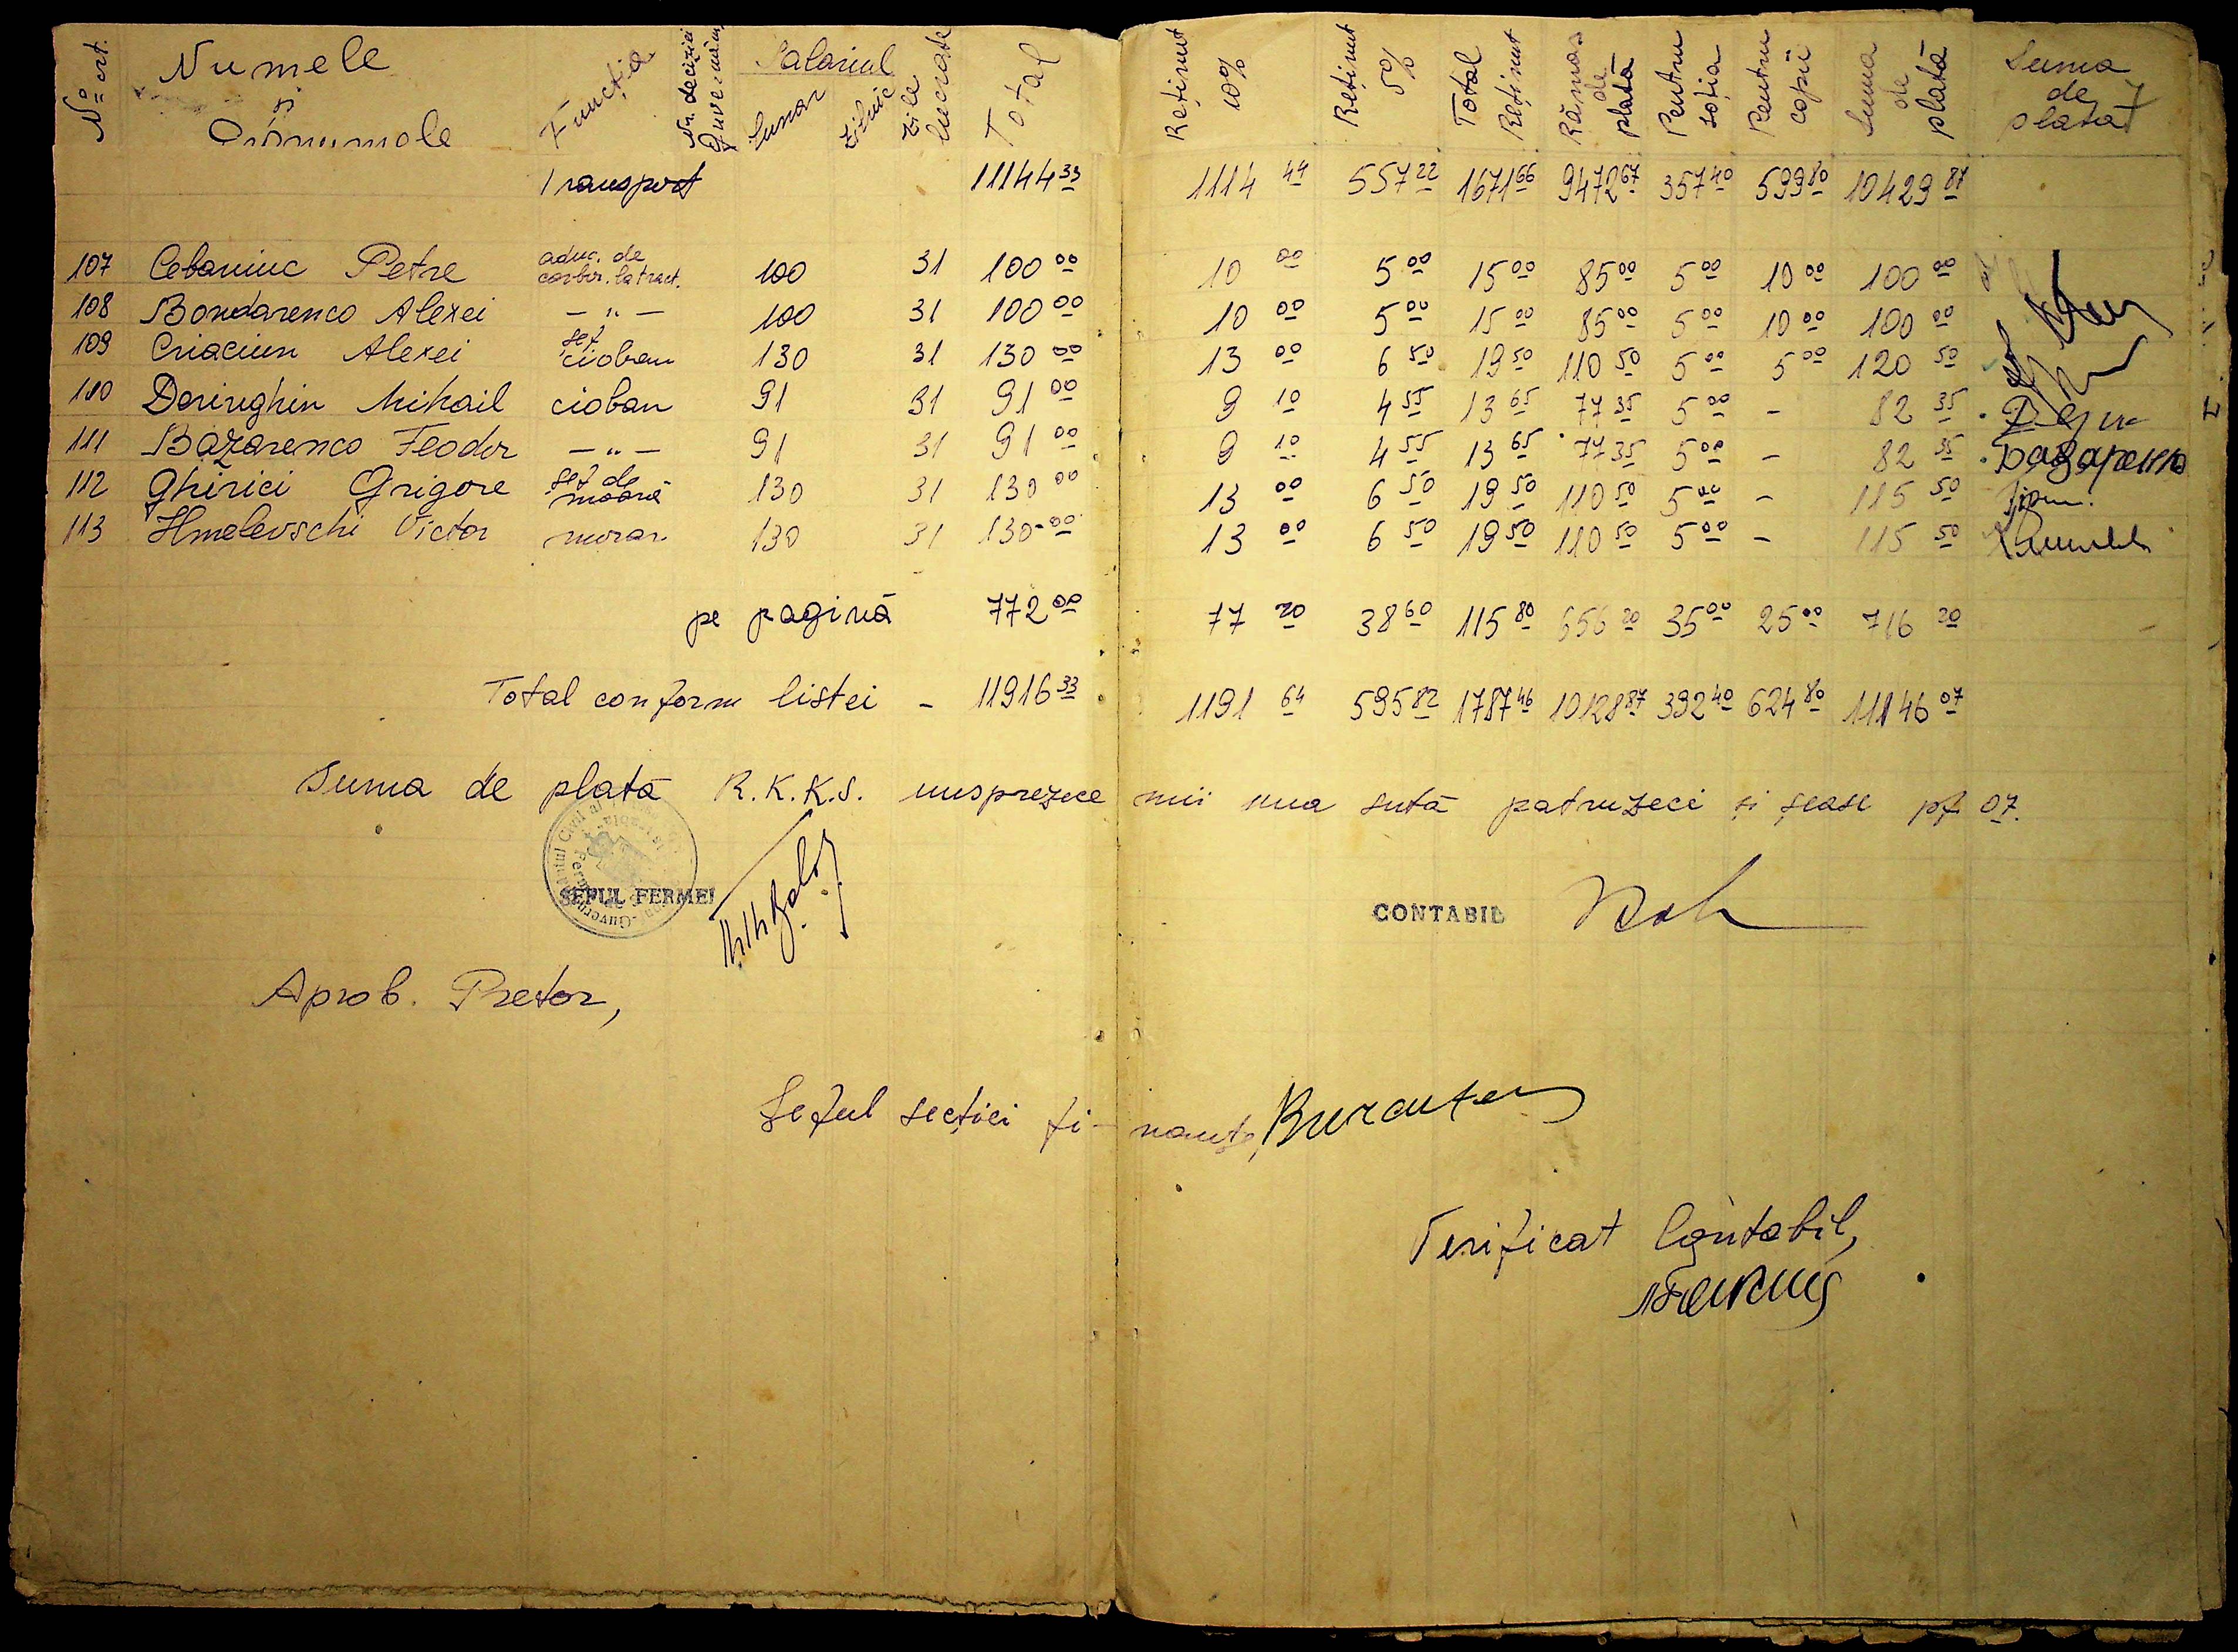 No crt. Numele și Pronumele Funcția Nr. deciziei Guvernăm. Salariul Lunar Zilnic Zile lucrate Total Reținut 10% Reținut 5% Total Reținut Rămas de plată Pentru soția Pentru copii Suma de plată Suma de plată
Transport 11144 33 1114 44 557 22 1671 66 9472 67 357 40 599 80 10429 87
107 Cebaniuc Petre aduc. de carbur. la tract. 100 31 100 00 10 00 5 00 15 00 85 00 5 00 10 00 100 00
108 Bondarenco Alexei — „ — 100 31 100 00 10 00 5 00 15 00 85 00 5 00 10 00 100 00
109 Criaciun Alexei șef cioban 130 31 130 00 13 00 6 50 19 50 110 50 5 00 5 00 120 50
110 Deringhin Mihail cioban 91 31 91 00 9 10 4 55 13 65 77 35 5 00 - 82 35
111 Bazarenco Feodor — „ — 91 31 91 00 9 10 4 55 13 65 77 35 5 00 - 82 35 Базаренко
112 Ghirici Grigore șef de moară 130 31 130 00 13 00 6 50 19 50 110 50 5 00 - 115 50
113 Hmelevschi Victor morar 130 31 130-00 13 00 6 50 19 50 110 50 5 00 - 115 50
pe pagină 772 00 77 20 38 60 115 80 656 20 35 00 25 00 716 20
Total conform listei - 11916 33 1191 64 595 82 1787 46 10128 87 392 40 624 80 11146 07
Suma de plată R.K.K.S. unsprezece mii una sută patruzeci și șease pf 07.
ȘEFUL FERMEI
CONTABIL
Aprob. Pretor,
Șeful secției fi-nanțe,
Verificat Contabil,